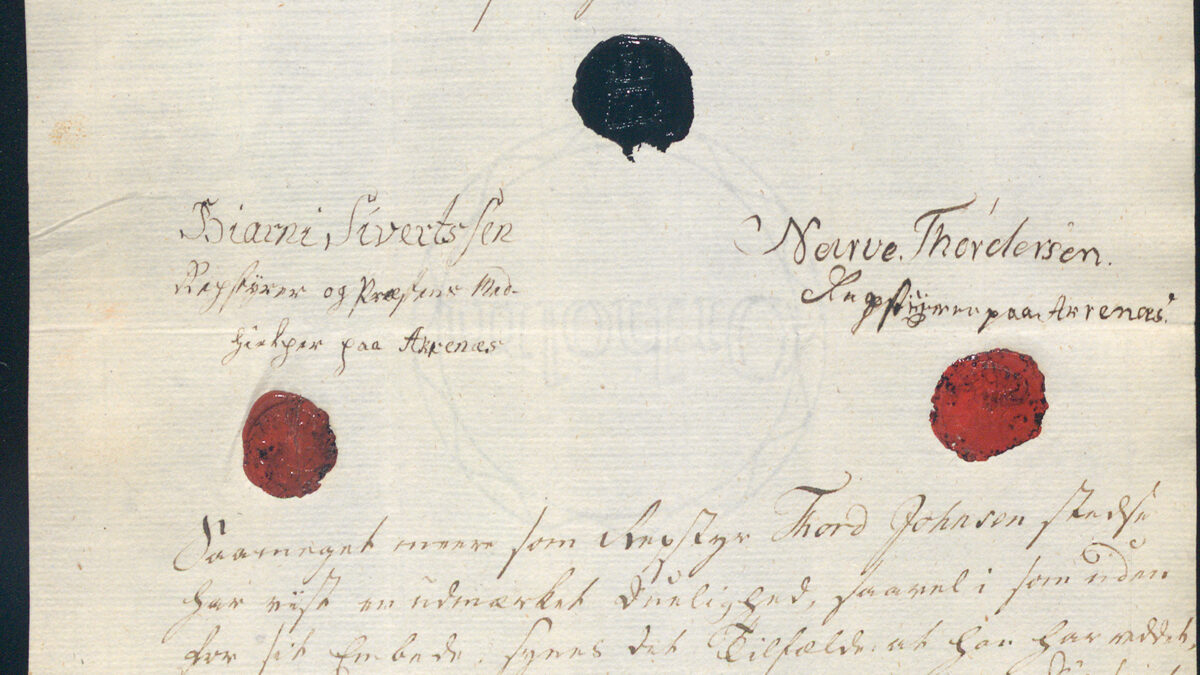 Biarni Sivertssen
Repstyrer og Præsens Med-
hielper paa Akrenæs
Narve Thordersen.
Repstyrer paa Akrenæs
Saameget meere som Repstyr Thord Johnsen stedse
har viist en udmærket Duelighed, saavel i som uden
for sit Embede, synes det Tilfælde at han har reddet,